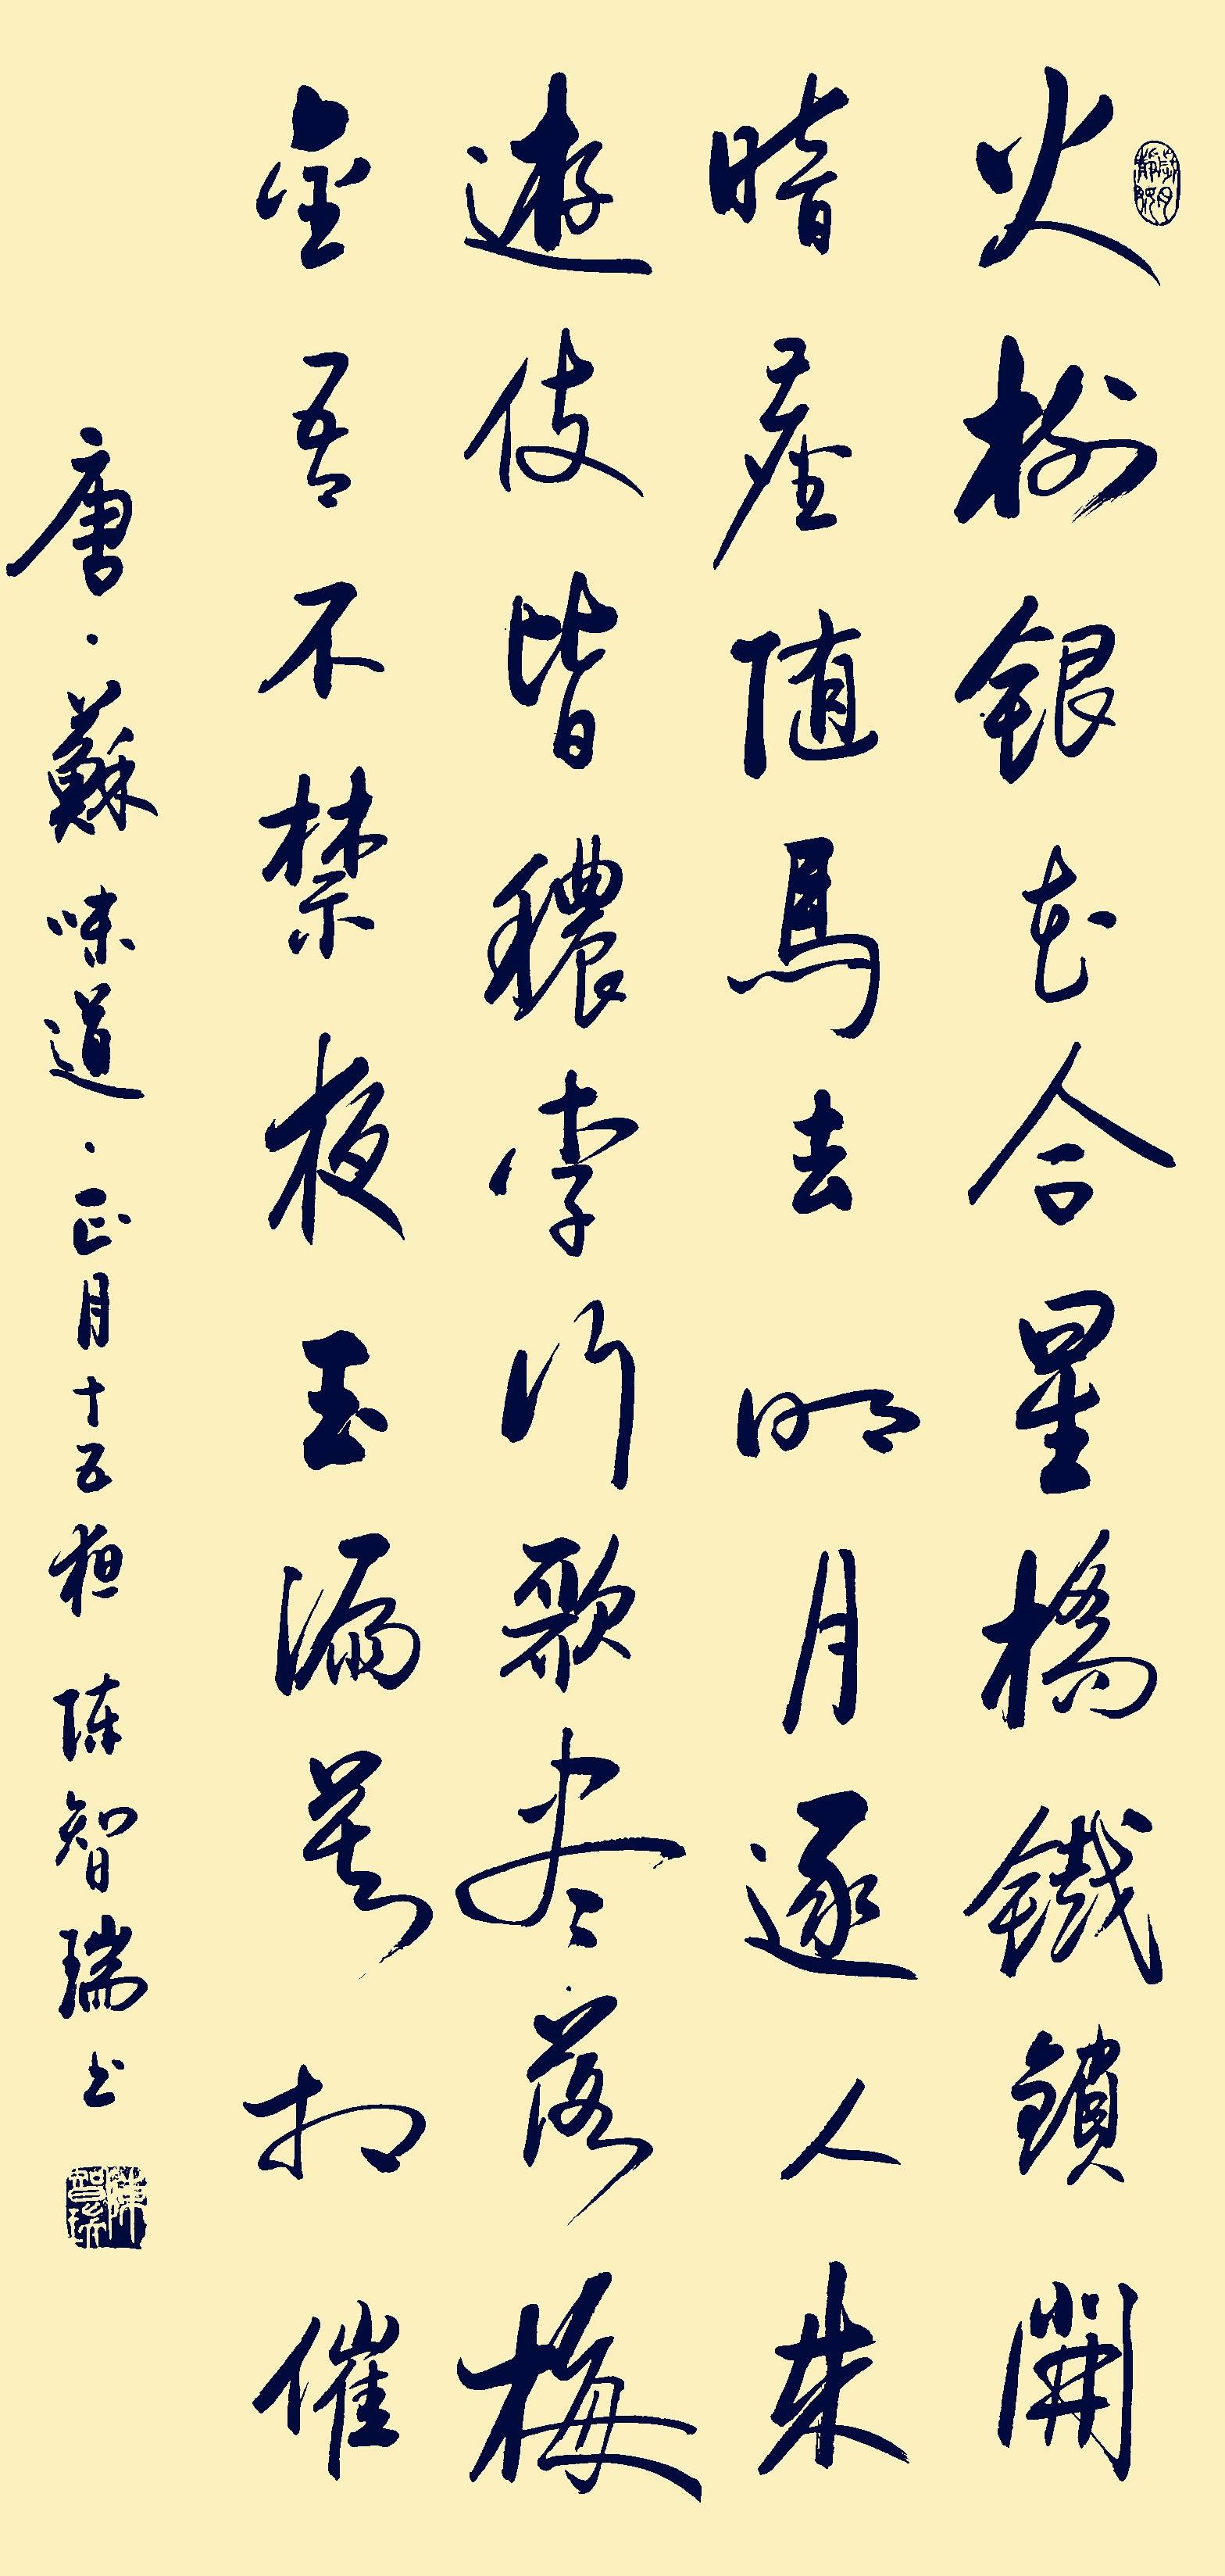 火树银花合星橋鐵鎖開
暗塵随馬去明月逐人来
遊伎皆穠李行歌尽落梅
金吾不禁夜玉漏莫相催
唐·蘇味道·正月十五夜 陈智瑞书
陳智瑞